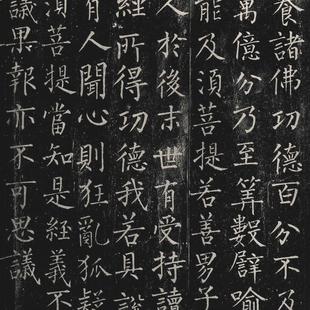 養諸佛功德百分不及
萬億分乃至筭數譬喻
能及須菩提若善男子
人於後末世有受持讀
經所得功德我若具說
有人聞心則狂亂狐疑
須菩提當知是經義不
議果報亦不可思議